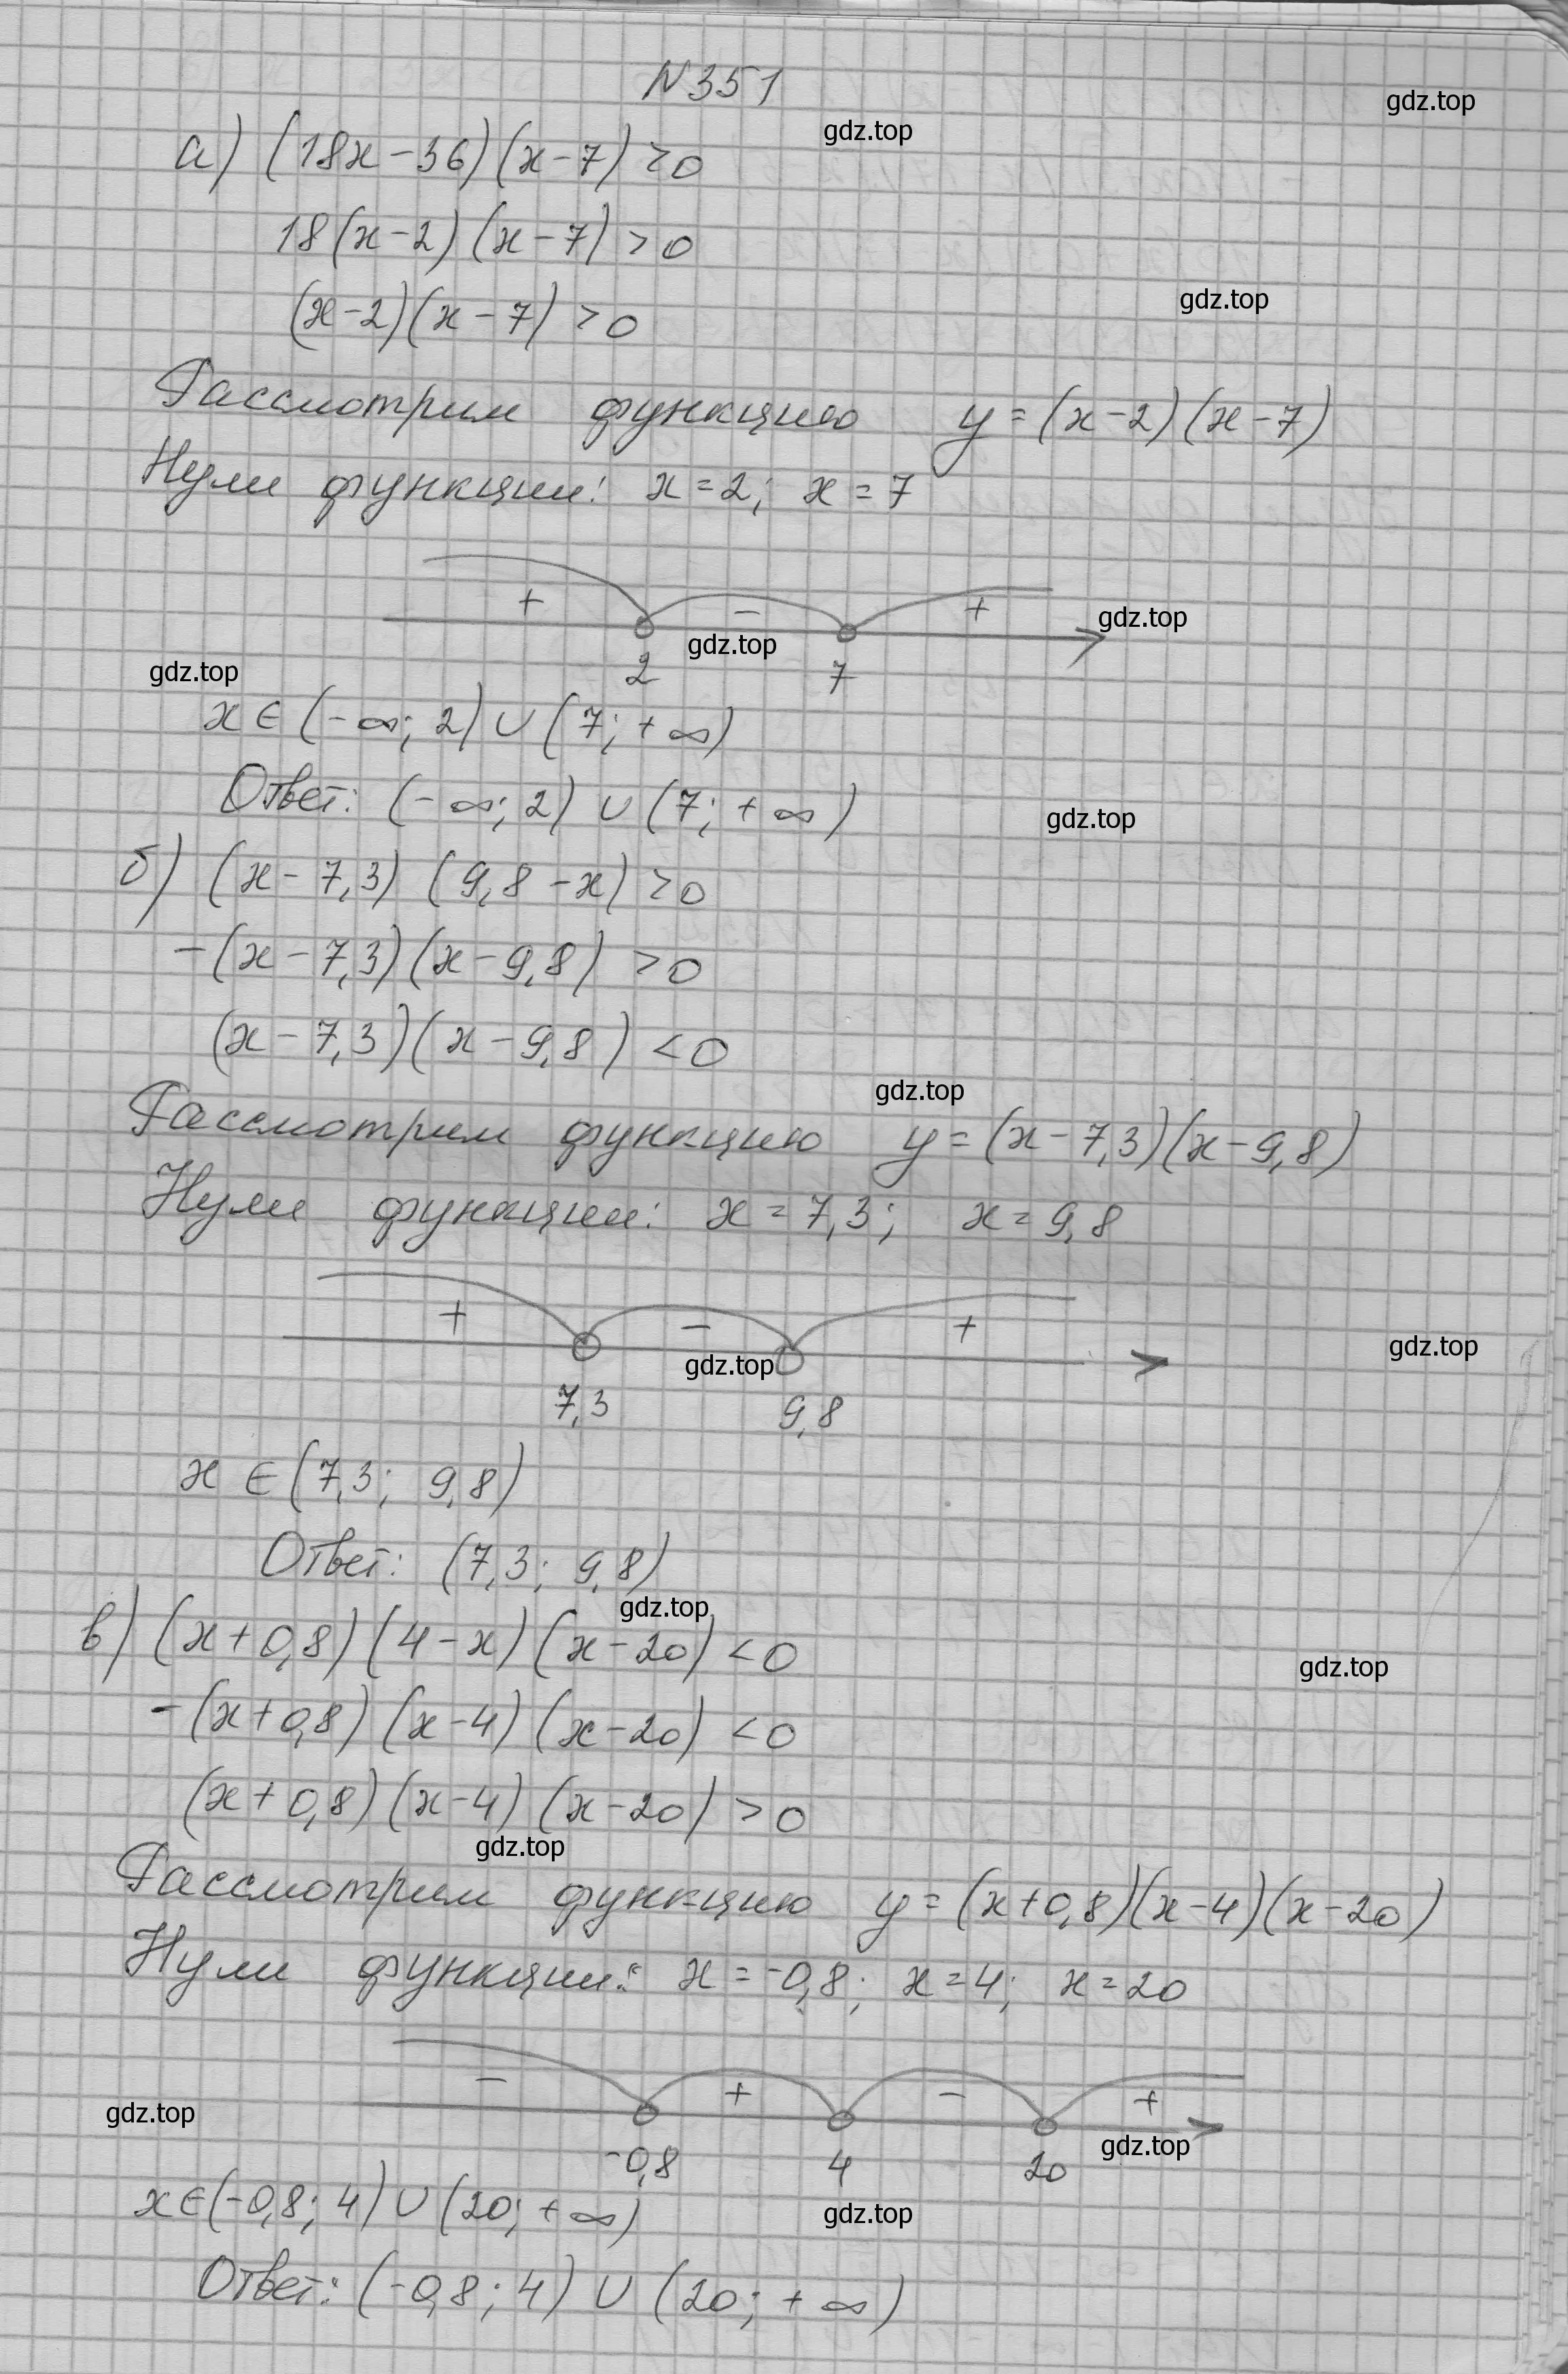 N351
gdz.top
gdz.top
а) (18x-36)(x-7)>0
18(x-2)(x-7)>0
gdz.top
(x-2)(x-7)>0
Рассмотрим функцию y=(x-2)(x-7)
Нули функции: x=2; x=7
+ - +
gdz.top gdz.top
gdz.top
2 7
x∈(-∞; 2)∪(7; +∞)
Ответ: (-∞; 2)∪(7; +∞)
gdz.top
б) (x-7,3)(9,8-x)>0
-(x-7,3)(x-9,8)>0
(x-7,3)(x-9,8)<0
gdz.top
Рассмотрим функцию y=(x-7,3)(x-9,8)
Нули функции: x=7,3; x=9,8
+ - +
gdz.top gdz.top
7,3 9,8
x∈(7,3; 9,8)
Ответ: (7,3; 9,8)
gdz.top
в) (x+0,8)(4-x)(x-20)<0
gdz.top
-(x+0,8)(x-4)(x-20)<0
(x+0,8)(x-4)(x-20)>0
gdz.top
Рассмотрим функцию y=(x+0,8)(x-4)(x-20)
Нули функции: x=-0,8; x=4; x=20
- + - +
gdz.top gdz.top
-0,8 4 20
x∈(-0,8; 4)∪(20; +∞)
gdz.top
Ответ: (-0,8; 4)∪(20; +∞)